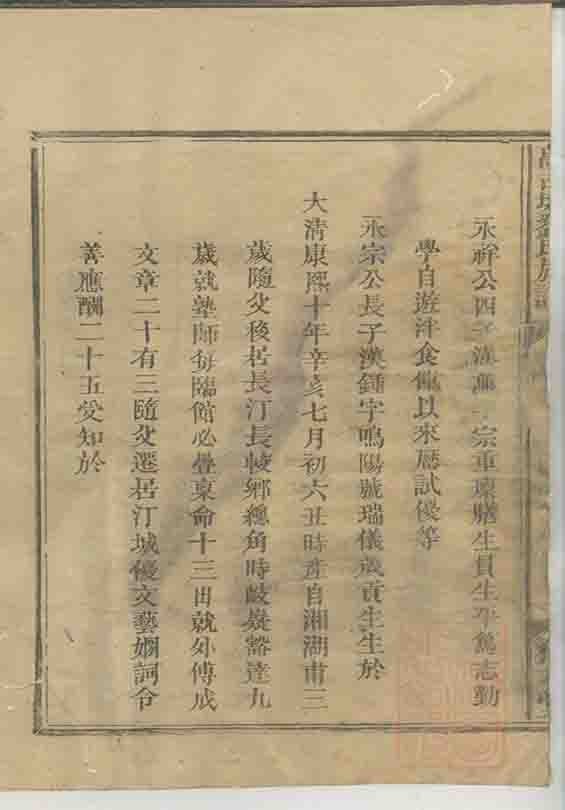 永祥公四子漢 字宗重 廩膳生員生平篤志勤
學自遊泮食餼以來歷試優等
永宗公長子漢鍾字鳴陽號瑞儀歲貢生生於
大清康熙十年辛亥七月初六丑時產自湘湖甫三
歲隨父後居長汀長㱥鄉總角時岐嶷豁達九
歲就塾師每臨館必疊稟命十三出就外傅成
文章二十有三隨父遷居汀城優文藝嫻詞令
善應酬二十五受知於
劉氏族譜